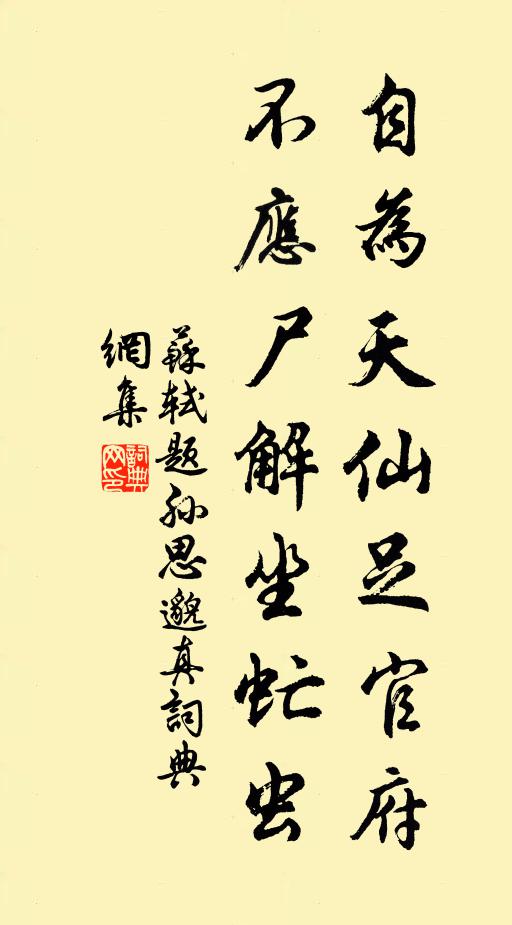 自為天仙足官府
不應尸解坐虻虫
蘇軾题孙思邈真詞典
網集
詞典
网印